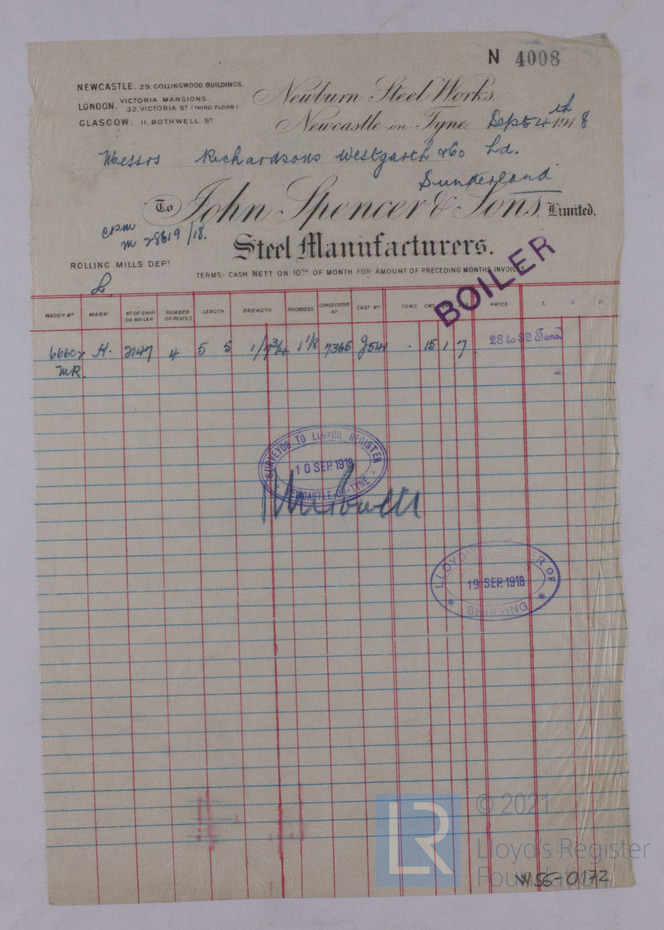 N 4008
NEWCASTLE, 29. COLLINGWOOD BUILDINGS.
LONDON, VICTORIA MANSIONS. 32. VICTORIA ST (THIRD FLOOR)
GLASGOW, 11. BOTHWELL ST
Newburn Steel Works,
Newcastle-on-Tyne. Sept 4th 1918
Messrs Richardsons Westgarth & Co Ld.
Sunderland
To John Spencer & Sons, Limited.
m 28619/18.
Steel Manufacturers.
ROLLING MILLS DEPT
TERMS:- CASH NETT ON 10TH OF MONTH FOR AMOUNT OF PRECEDING MONTHS INVOICE
BOILER
WAGGON No MARK No OF SHIP OR BOILER NUMBER OF PLATES LENGTH BREADTH THICKNESS CONSECUTIVE No CAST No TONS. PRICE £ S D
H. 2147 4 5 5 1/7 3/4 1 1/8 7366 . 15 1 7 28 to 32 Tons.
MR.
SURVEYOR TO LLOYDS REGISTER
10 SEP. 1918
NEWCASTLE-ON-TYNE
LLOYD'S REGISTER OF
19 SEP. 1918
SHIPPING
LR
© 2021
Lloyd's Register
Foundation
W55-0172